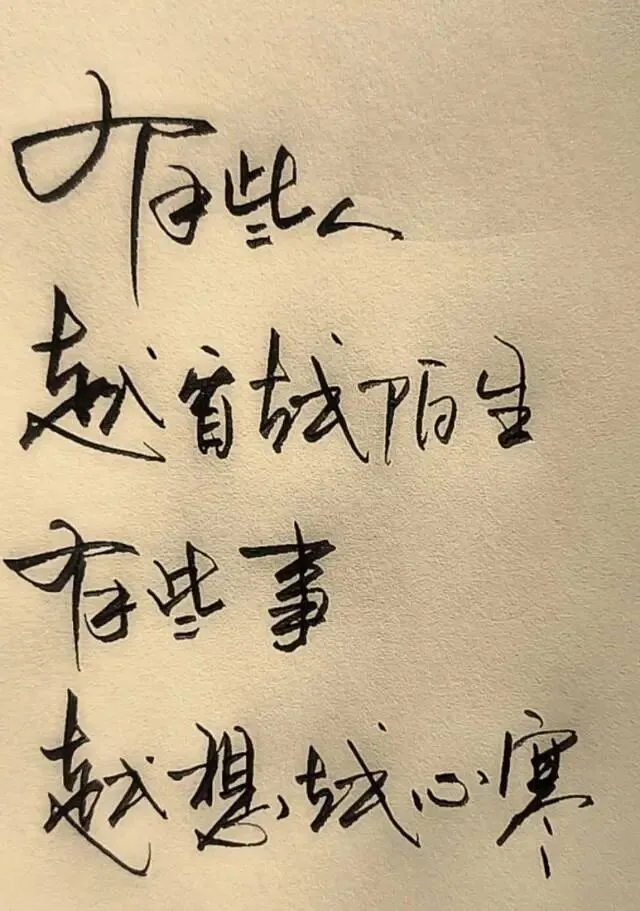 有些人
越看越陌生
有些事
越想越心寒